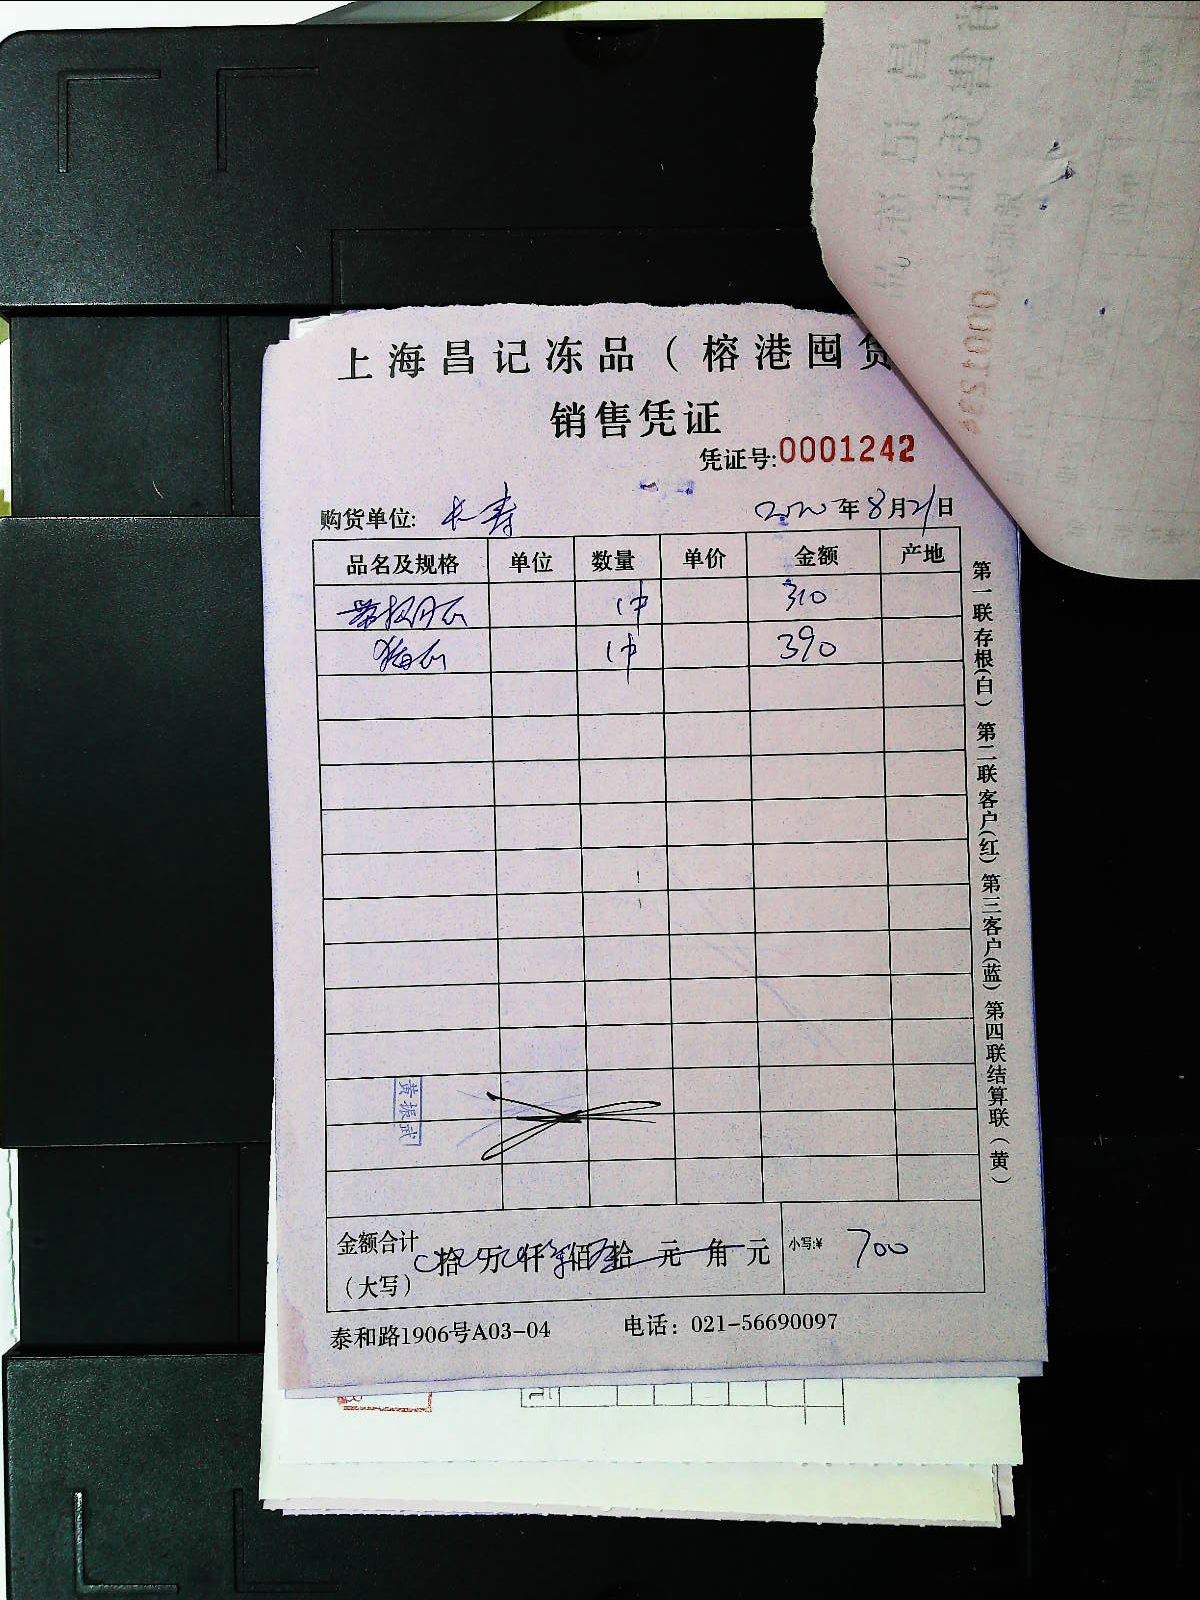 上海昌记冻品（榕港囤货
销售凭证
凭证号:0001242
购货单位: 长寿 2020年8月21日
品名及规格 单位 数量 单价 金额 产地
1件 310
1件 390
第一联存根(白) 第二联客户(红) 第三客户(蓝) 第四联结算联(黄)
黄振武
金额合计 拾 万 仟 佰 拾 元 角 元 小写:¥ 700
（大写）
泰和路1906号A03-04 电话: 021-56690097